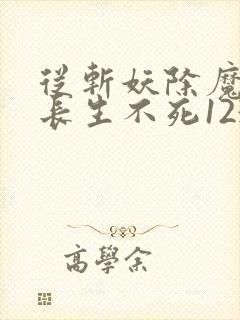 從斬妖除魔
長生不死12
高學余